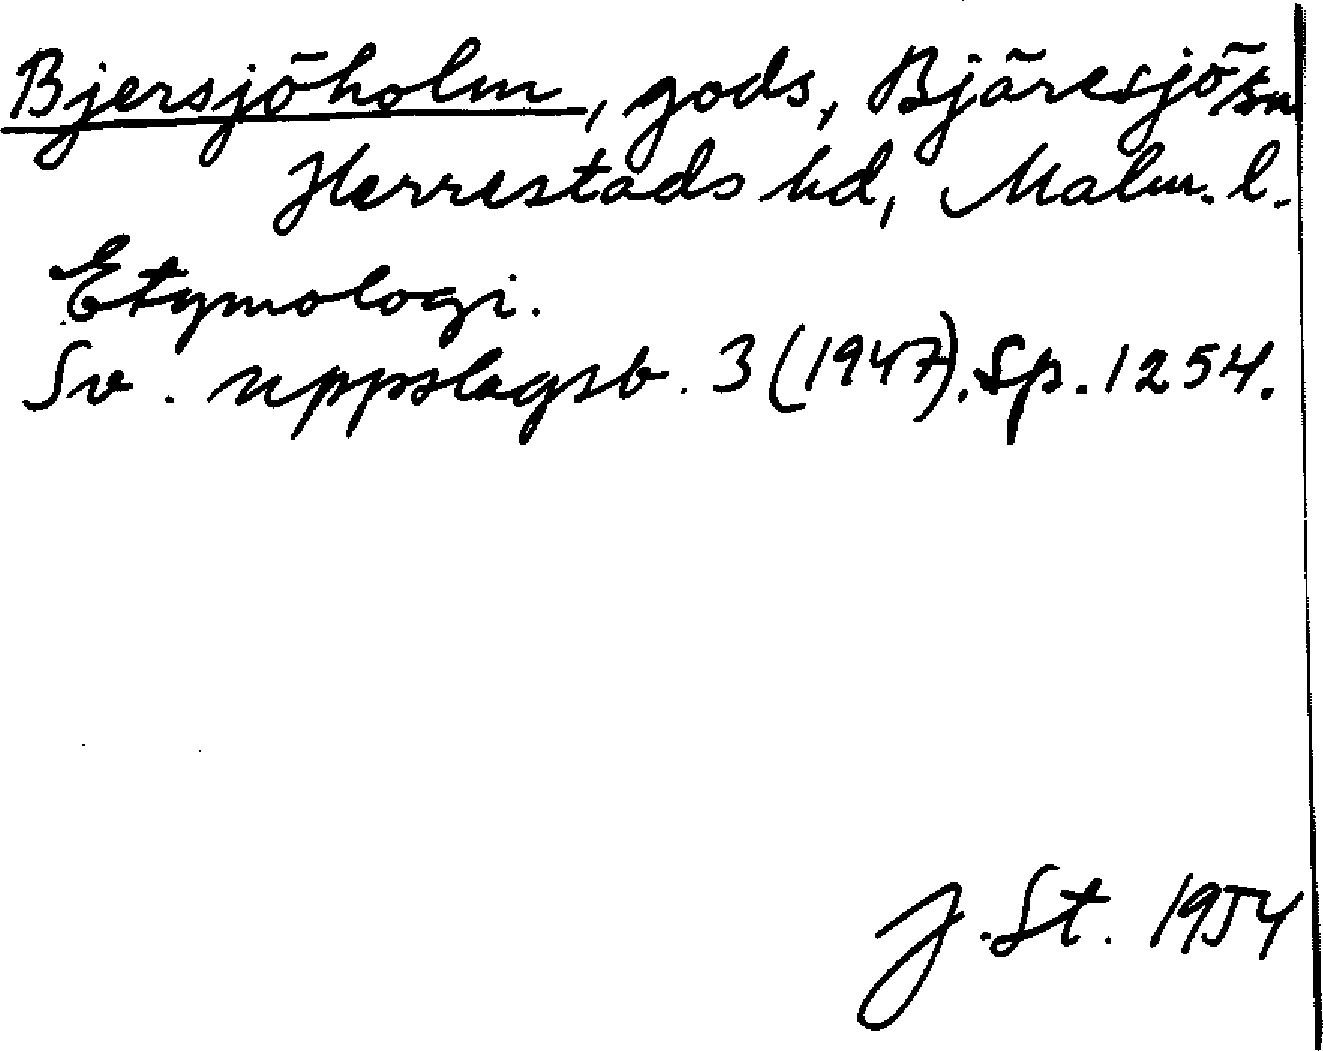 Bjersjöholm, gods, Bjäresjö sn
Herrestads hd, Malm. l.
Etymologi.
Sv. uppslagsb. 3 (1947). Sp. 1254.
J. St. 1954